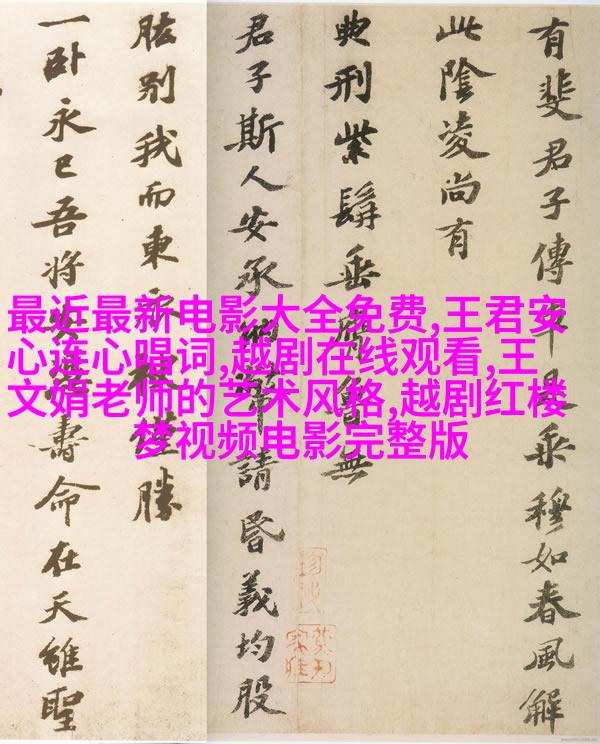 有斐君子傳車是乘穆如春風解
此陰凌尚有
典刑紫髯垂魯無
君子斯人安承請昏義均股
肱別我而東衣勝
一卧永已吾將壽命在天雖聖
最近最新电影大全免费,王君安
心连心唱词,越剧在线观看,王
文娟老师的艺术风格,越剧红楼
梦视频电影完整版